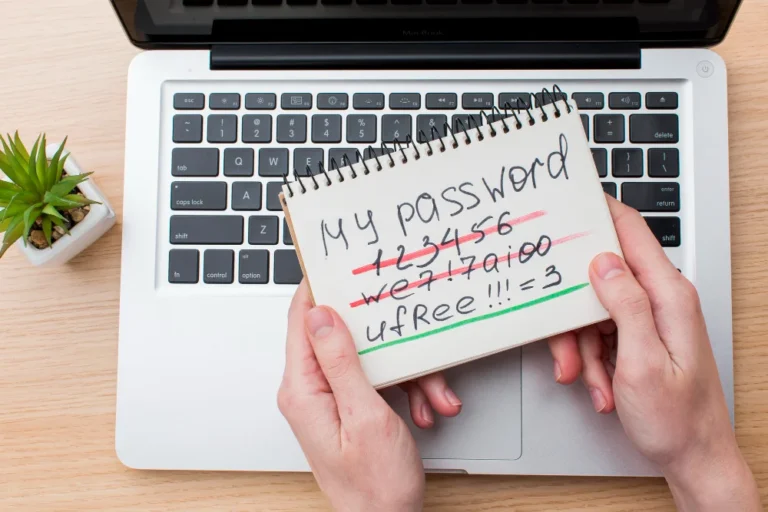 MacBook
esc
~ ` ! 1 @ 2 # 3 $ 4 % 5 ^ 6 & + = delete
tab Q W E R } ] | \
caps lock A enter return
shift Z shift
fn control alt option
My password
123456
we7!7aioo
ufRee!!!=3